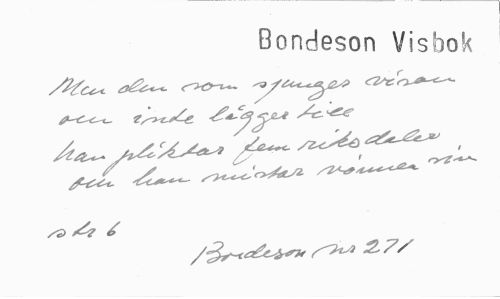 Bondeson Visbok
Men den som sjunger visan
om inte lägger till
han pliktar fem riksdaler
om han mistar vännen sin
str 6
Bondeson nr 271